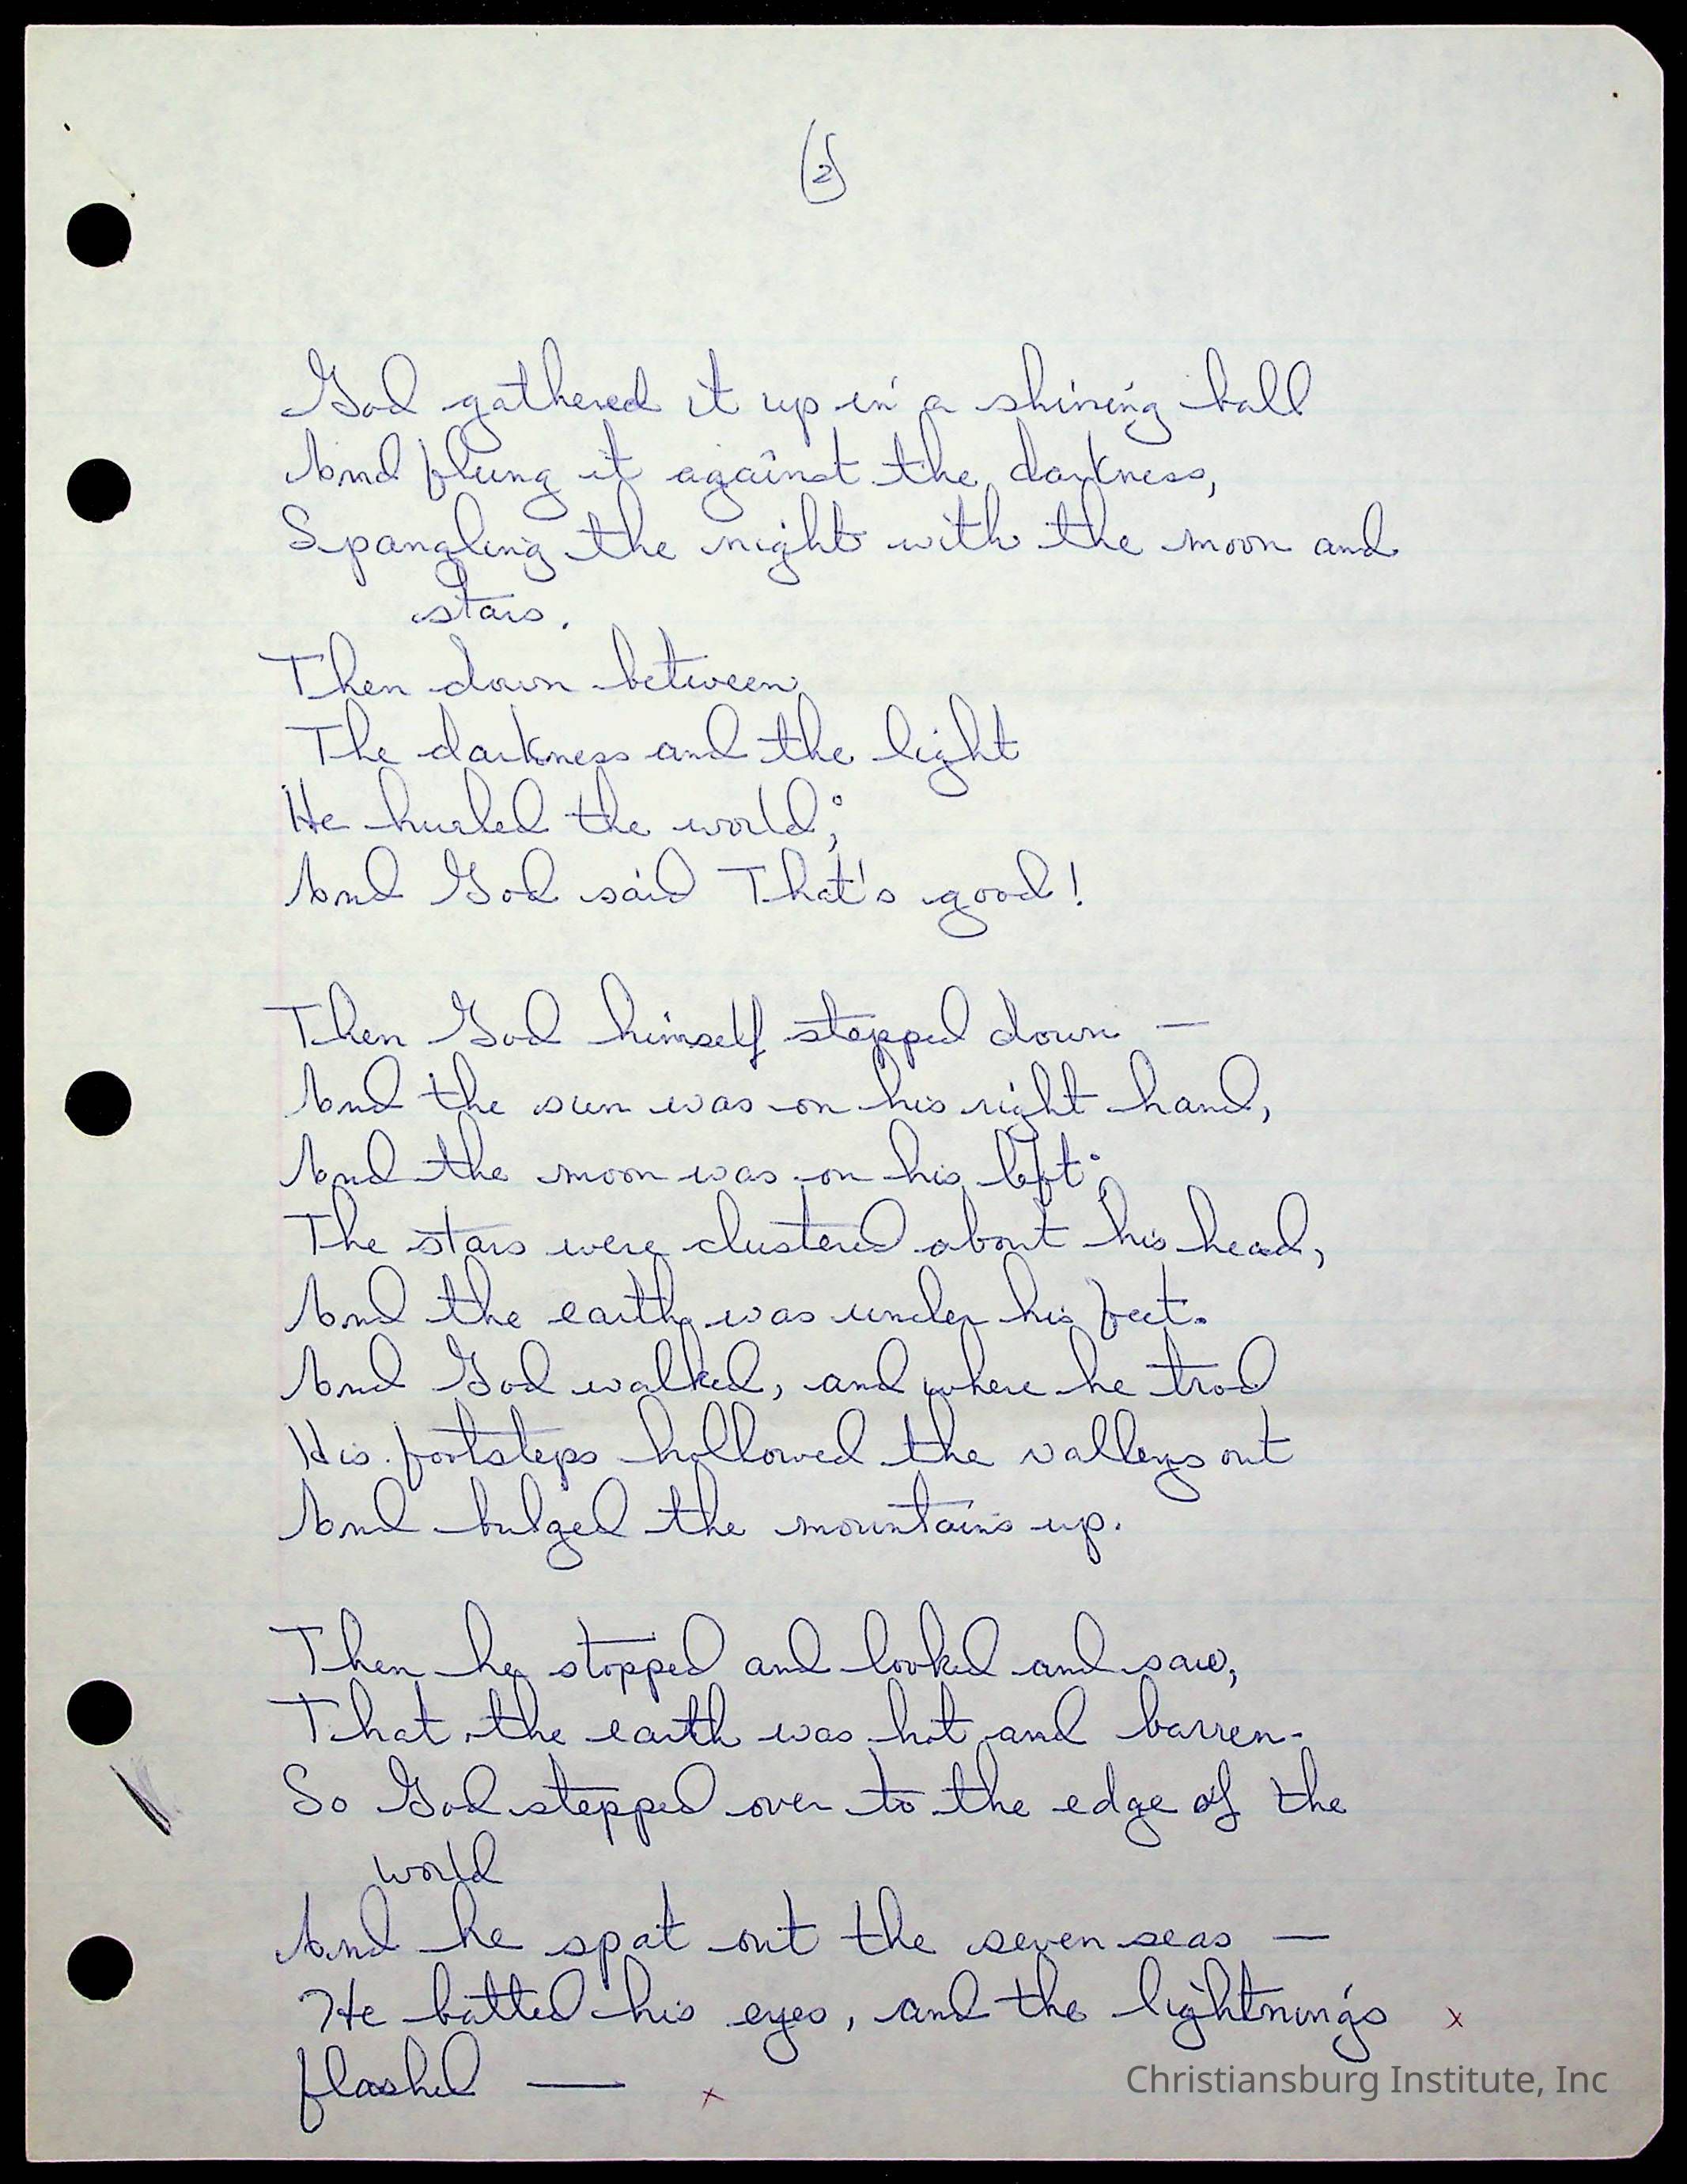 (2)
God gathered it up in a shining ball
And flung it against the darkness,
Spangling the night with the moon and
stars.
Then down between
The darkness and the light
He hurled the world;
And God said That's good!
Then God himself stepped down —
And the sun was on his right hand,
And the moon was on his left;
The stars were clustered about his head,
And the earth was under his feet.
And God walked, and where he trod
His footsteps hollowed the valleys out
And bulged the mountains up.
Then he stopped and looked and saw,
That the earth was hot and barren.
So God stepped over to the edge of the
world
And he spat out the seven seas —
He batted his eyes, and the lightnings x
flashed — x
Christiansburg Institute, Inc